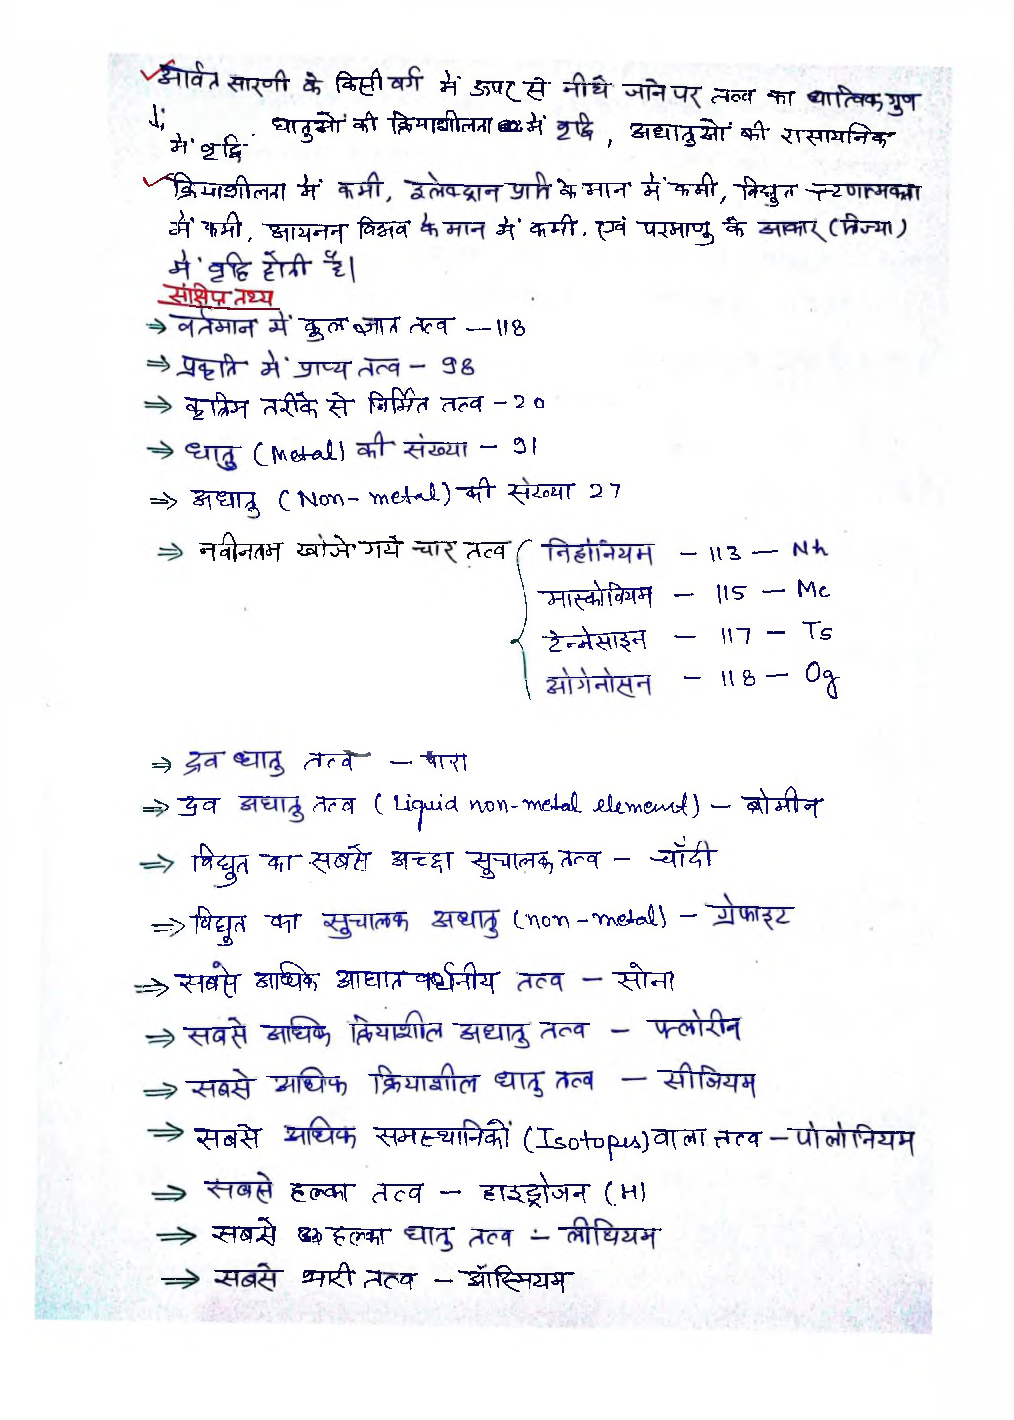 आर्वत सारणी के किसी वर्ग में ऊपर से नीचे जाने पर तत्व का धात्विक गुण
में वृद्धि धातुओं की क्रियाशीलता में वृद्धि, अधातुओं की रासायनिक
क्रियाशीलता में कमी, इलेक्ट्रान प्राप्ति के मान में कमी, विद्युत ऋणात्मकता
में कमी, आयनन विभव के मान में कमी, एवं परमाणु के आकार (त्रिज्या)
में वृद्धि होती है।
संक्षिप्त तथ्य
⇒ वर्तमान में कुल ज्ञात तत्व — 118
⇒ प्रकृति में प्राप्य तत्व - 98
⇒ कृत्रिम तरीके से निर्मित तत्व - 20
⇒ धातु (Metal) की संख्या - 91
⇒ अधातु (Non-metal) की संख्या 27
⇒ नवीनतम खोजे गये चार तत्व { निहोनियम - 113 — Nh
मास्कोवियम - 115 - Mc
टेन्नेसाइन - 117 - Ts
ओगेनोसन - 118 - Og
⇒ द्रव धातु तत्व - पारा
⇒ द्रव अधातु तत्व (Liquid non-metal element) - ब्रोमीन
⇒ विद्युत का सबसे अच्छा सुचालक तत्व - चाँदी
⇒ विद्युत का सुचालक अधातु (non-metal) - ग्रेफाइट
⇒ सबसे अधिक आघात वर्धनीय तत्व - सोना
⇒ सबसे अधिक क्रियाशील अधातु तत्व - फ्लोरीन
⇒ सबसे अधिक क्रियाशील धातु तत्व - सीजियम
⇒ सबसे अधिक समस्थानिकों (Isotopes) वाला तत्व - पोलोनियम
⇒ सबसे हल्का तत्व - हाइड्रोजन (H)
⇒ सबसे हल्का धातु तत्व - लीथियम
⇒ सबसे भारी तत्व - ऑस्मियम